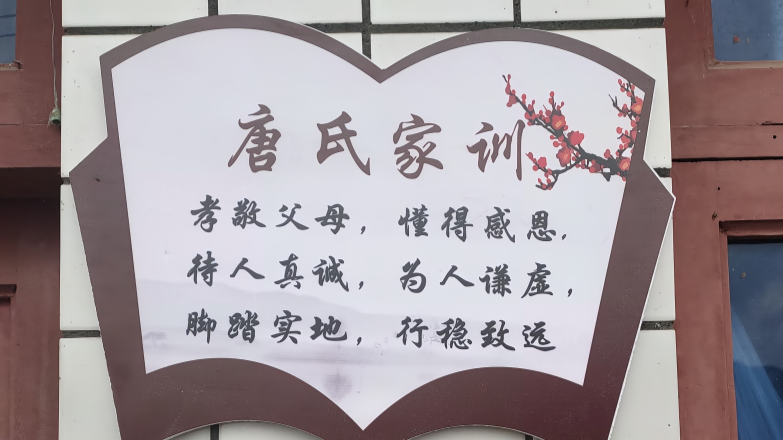 唐氏家训
孝敬父母，懂得感恩，
待人真诚，为人谦虚，
脚踏实地，行稳致远